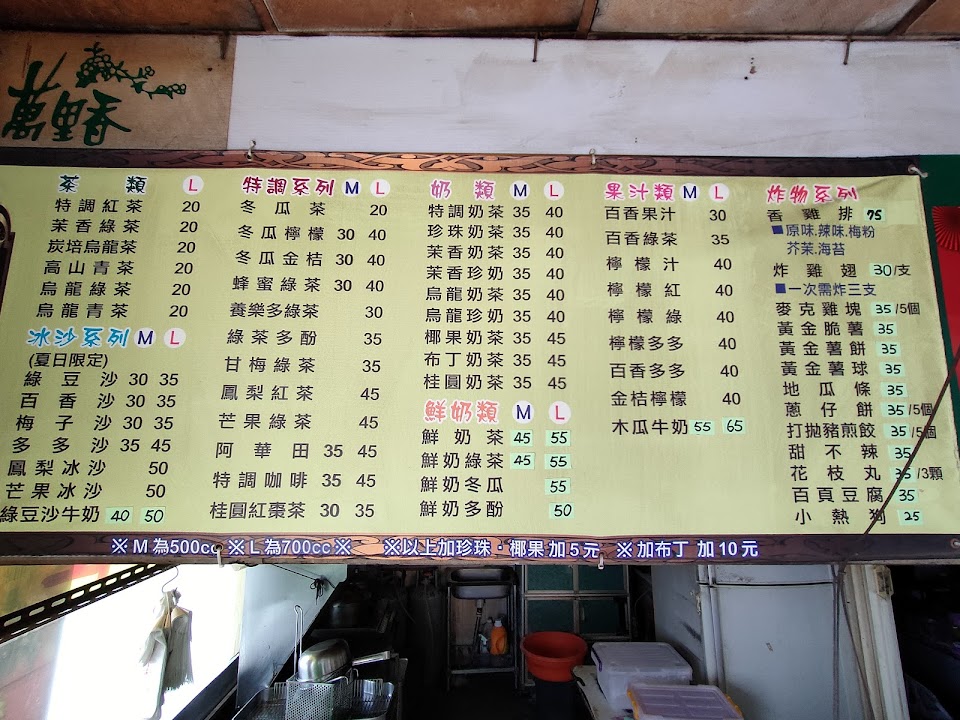 萬里香
茶類 L
特調紅茶 20
茉香綠茶 20
炭培烏龍茶 20
高山青茶 20
烏龍綠茶 20
烏龍青茶 20
冰沙系列 M L
(夏日限定)
綠豆沙 30 35
百香沙 30 35
梅子沙 30 35
多多沙 35 45
鳳梨冰沙 50
芒果冰沙 50
綠豆沙牛奶 40 50
特調系列 M L
冬瓜茶 20
冬瓜檸檬 30 40
冬瓜金桔 30 40
蜂蜜綠茶 30 40
養樂多綠茶 30
綠茶多酚 35
甘梅綠茶 35
鳳梨紅茶 45
芒果綠茶 45
阿華田 35 45
特調咖啡 35 45
桂圓紅棗茶 30 35
奶類 M L
特調奶茶 35 40
珍珠奶茶 35 40
茉香奶茶 35 40
茉香珍奶 35 40
烏龍奶茶 35 40
烏龍珍奶 35 40
椰果奶茶 35 45
布丁奶茶 35 45
桂圓奶茶 35 45
鮮奶類 M L
鮮奶茶 45 55
鮮奶綠茶 45 55
鮮奶冬瓜 55
鮮奶多酚 50
果汁類 M L
百香果汁 30
百香綠茶 35
檸檬汁 40
檸檬紅 40
檸檬綠 40
檸檬多多 40
百香多多 40
金桔檸檬 40
木瓜牛奶 55 65
炸物系列
香雞排 75
■原味,辣味,梅粉
芥茉,海苔
炸雞翅 30/支
■一次需炸三支
麥克雞塊 35/5個
黃金脆薯 35
黃金薯餅 35
黃金薯球 35
地瓜條 35
蔥仔餅 35/5個
打拋豬煎餃 35/5個
甜不辣 35
花枝丸 35/3顆
百頁豆腐 35
小熱狗 25
※M為500cc ※L為700cc※ ※以上加珍珠·椰果加5元 ※加布丁 加10元